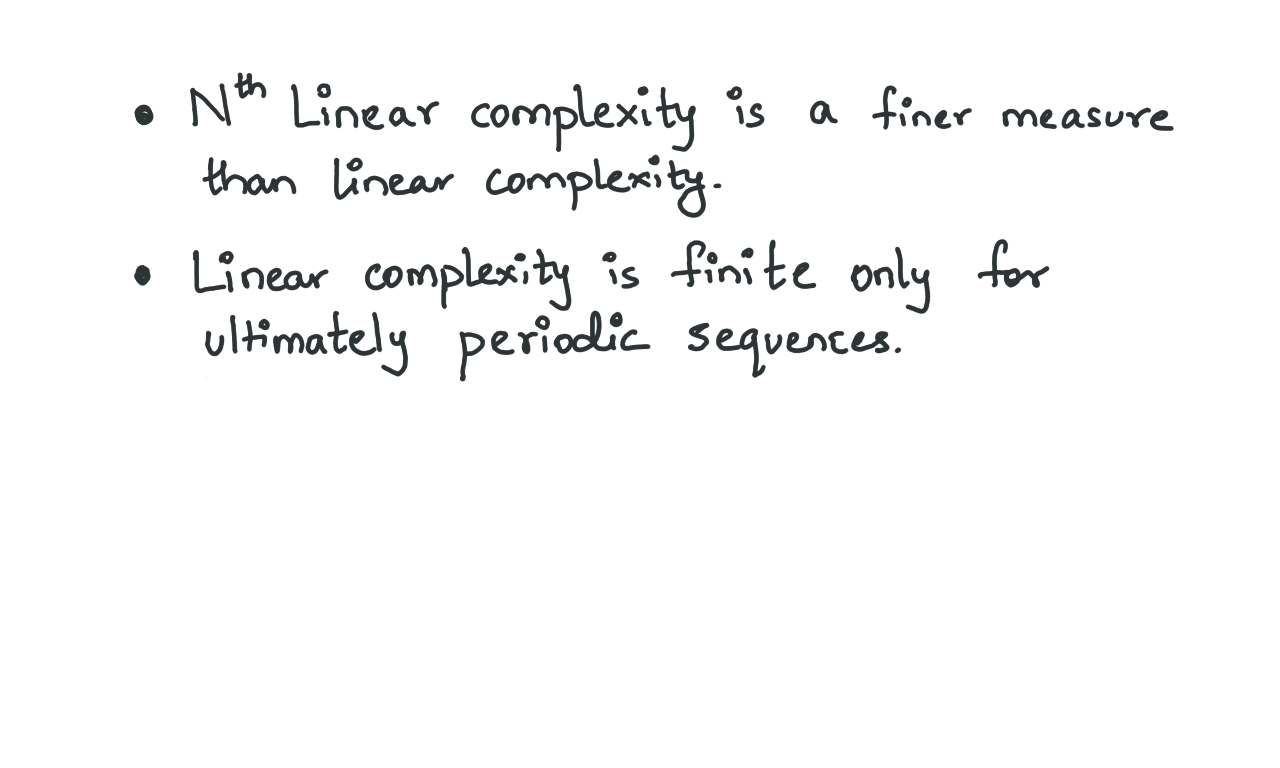 • Nth Linear complexity is a finer measure
than linear complexity.
• Linear complexity is finite only for
ultimately periodic sequences.